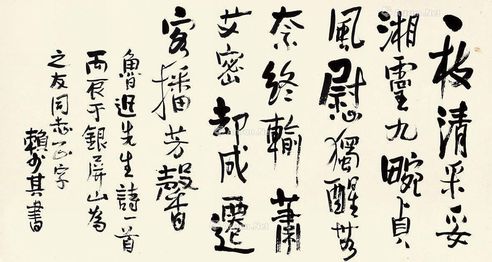 一枝清采妥
湘靈九畹貞
風慰獨醒無
奈終輸蕭
艾密却成遷
客播芳馨
魯迅先生詩一首
丙辰于銀屏山為
之友同志正字
賴少其書